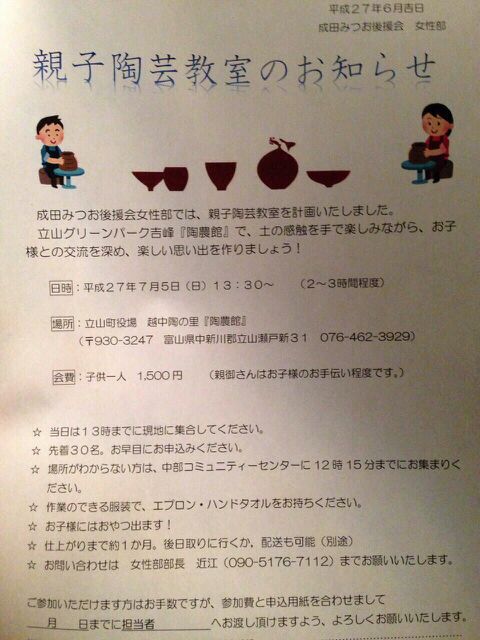 平成27年6月吉日
成田みつお後援会 女性部
親子陶芸教室のお知らせ
成田みつお後援会女性部では、親子陶芸教室を計画いたしました。
立山グリーンパーク吉峰『陶農館』で、土の感触を手で楽しみながら、お子
様との交流を深め、楽しい思い出を作りましょう!
日時:平成27年7月5日(日)13:30~ (2~3時間程度)
場所:立山町役場 越中陶の里『陶農館』
(〒930-3247 富山県中新川郡立山瀬戸新31 076-462-3929)
会費:子供一人 1,500円 (親御さんはお子様のお手伝い程度です。)
☆ 当日は13時までに現地に集合してください。
☆ 先着30名。お早目にお申込みください。
☆ 場所がわからない方は、中部コミュニティーセンターに12時15分までにお集まりく
ださい。
☆ 作業のできる服装で、エプロン・ハンドタオルをお持ちください。
☆ お子様にはおやつ出ます!
☆ 仕上がりまで約1か月。後日取りに行くか、配送も可能(別途)
☆ お問い合わせは 女性部部長 近江(090-5176-7112)までお願いいたします。
ご参加いただけます方はお手数ですが、参加費と申込用紙を合わせまして
月 日までに担当者 へお渡し頂けますよう、よろしくお願いいたします。